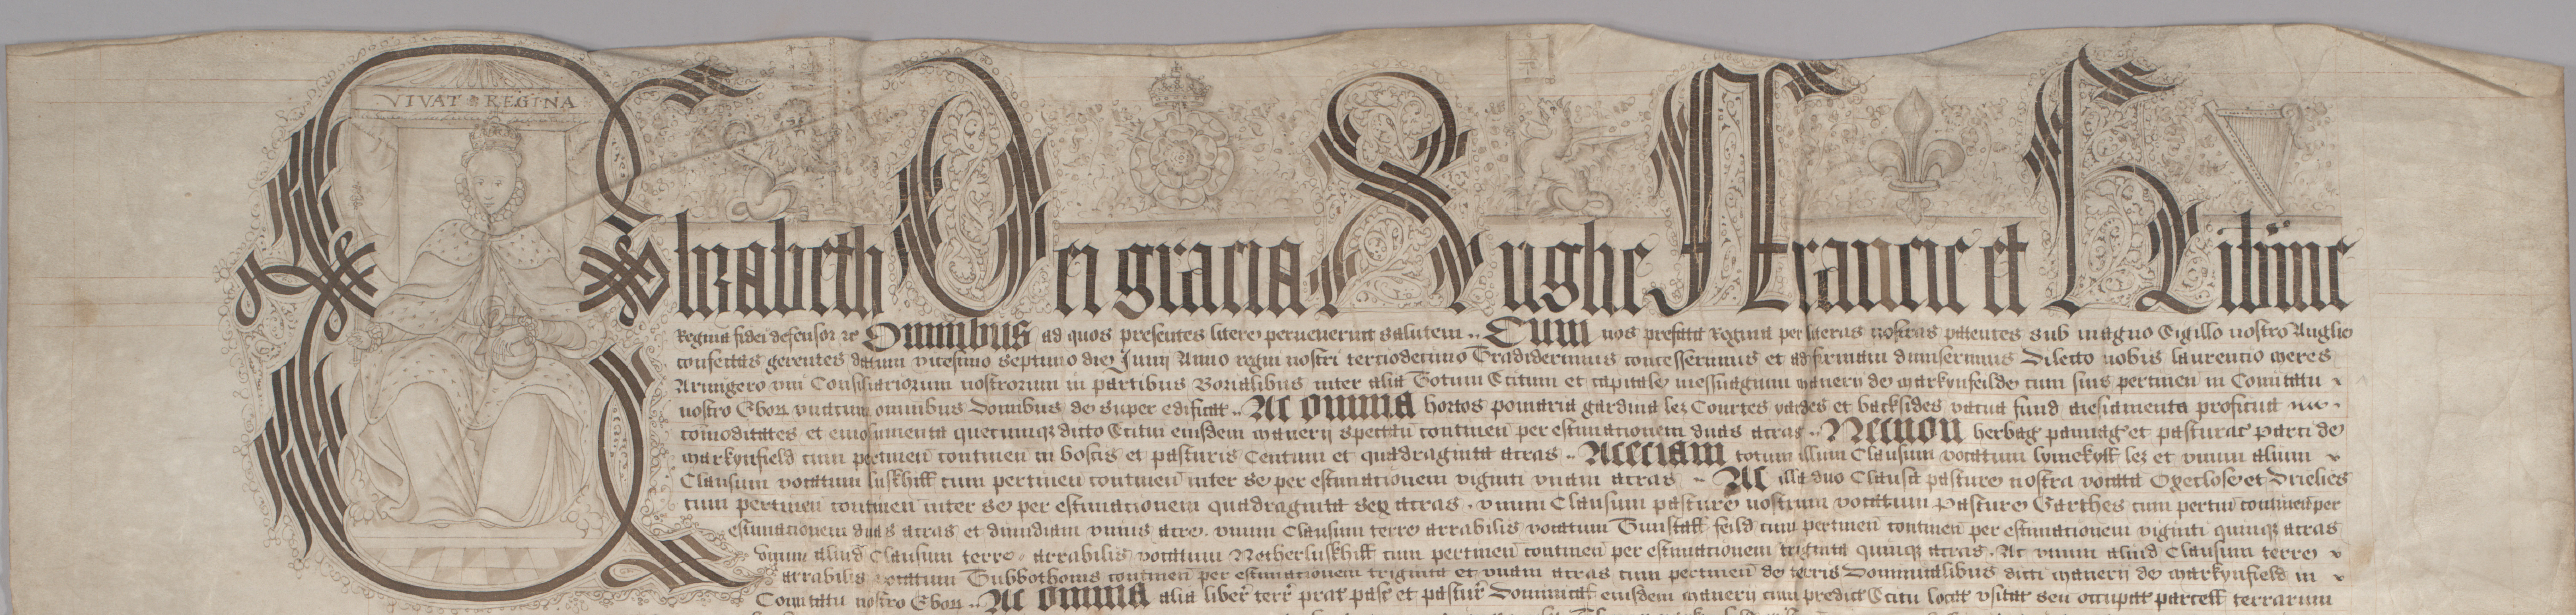 VIVAT REGINA
Elizabeth Dei gracia Anglie Francie et Hibnie
Regina fidei defensor &c Omnibus ad quos presentes litere pervenerint salutem .. Cum nos prefata Regina per literas nostras patentes sub magno Sigillo nostro Anglie
confectas gerentes datum vicesimo septimo die Junij Anno regni nostri terciodecimo Tradiderimus concesserimus et ad firmam dimiserimus Dilecto nobis laurencio meres
Armigero vni Consiliariorum nostrorum in partibus Borialibus inter alia Totum Scitum et capitale messuagium manerij de markynfeilde cum suis pertinen in Comitatu
nostro Ebor vnacum omnibus Domibus de super edificat .. Ac omnia hortos pomaria gardina lez Courtes yardes et backsides vacua fund aiesiamenta proficua
comoditates et emolumenta quecumq dicto Scitui eiusdem manerij spectan continen per estimationem duas acras .. Necnon herbag pannag et pasturas Parci de
markynfield cum pertinen continen in boscis et pasturis Centum et quadraginta acras .. Aceciam totum illum Clausum vocatum lymekyll lez et vnum alium
Clausum vocatum luskhill cum pertinen continen inter se per estimationem viginti vnam acras .. Ac illa duo Clausa pasture nostra vocata Oxeclose et Drielies
cum pertinen continen inter se per estimationem quadraginta sex acras . vnum Clausum pasture nostrum vocatum Pasture Garthes cum pertin continen per
estimationem duas acras et dimidiam vnius acre . vnum Clausum terre arrabilis vocatum Tunstall feild cum pertinen continen per estimationem viginti quinq acras
vnum aliud Clausum terre arrabilis vocatum Netherluskhill cum pertinen continen per estimationem triginta quinq acras . Ac vnum aliud Clausum terre
arrabilis vocatum Tubbothoms continen per estimationem triginta et vnam acras cum pertinen de terris Dominicalibus dicti manerij de markynfield in
Comitatu nostro Ebor .. Ac omnia alia liber terr prat pasc et pastur Dominical eiusdem manerij cum predict Scitu locat vsitat seu occupat parcell terrarum